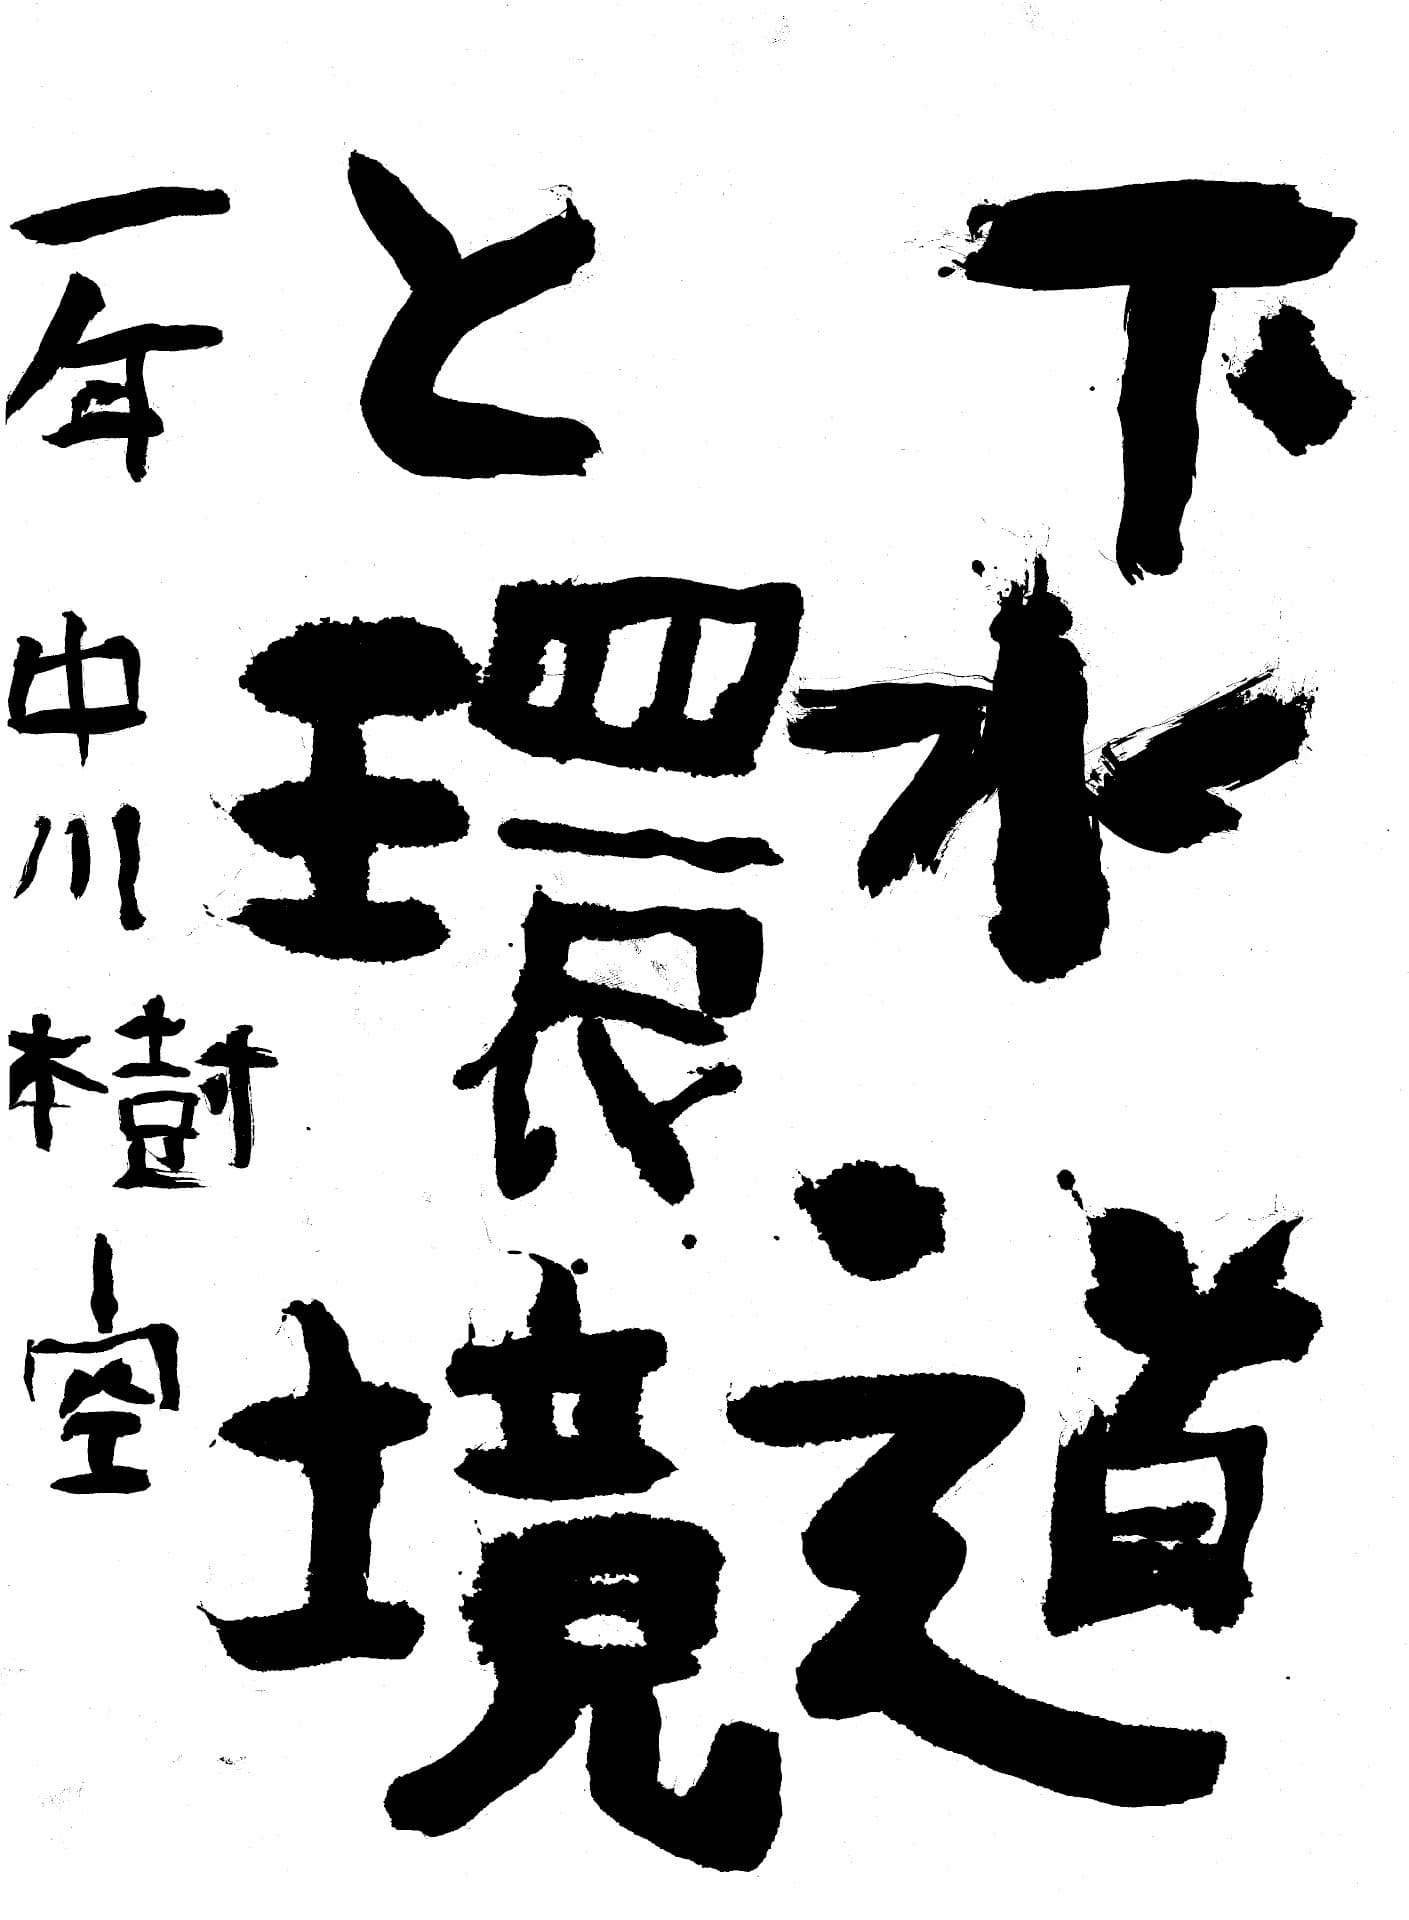 下水道
と環境
一年 中川樹空